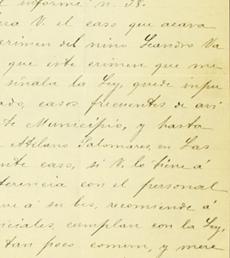 informe n. 38.
V. el caso que acava
crimen del niño Leandro Va
que este crimen que me
señala la Ley, quede inpu
casos frecuentes de
te Municipio, y hasta
Atilano Salomares, en Las
nte caso, si V. lo tiene á
ferencia con el personal
ve á su bes, recomiende á
iciales, cumplan con la Ley,
tan poco comun, y mere